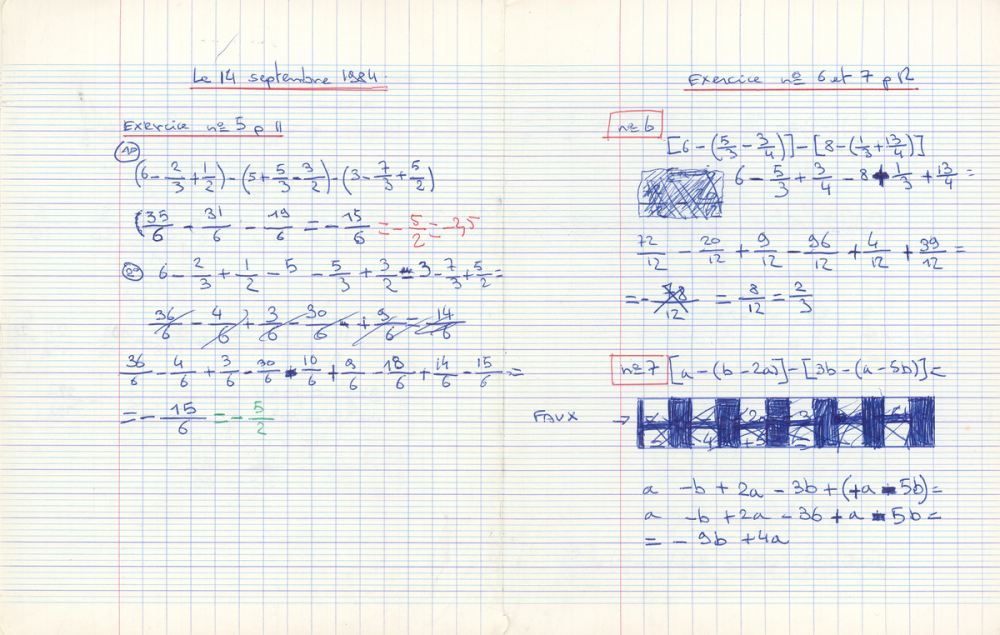 Le 14 septembre 1984.
Exercice nº 5 p 11
1º
(6 - 2/3 + 1/2) - (5 + 5/3 - 3/2) - (3 - 7/3 + 5/2)
(35/6 - 31/6 - 19/6 = - 15/6 = - 5/2 = -2,5
2º 6 - 2/3 + 1/2 - 5 - 5/3 + 3/2 - 3 - 7/3 + 5/2 =
36/6 - 4/6 + 3/6 - 30/6 - + 9/6 = 14/6
36/6 - 4/6 + 3/6 - 30/6 - 10/6 + 9/6 - 18/6 + 14/6 - 15/6 =
= - 15/6 = - 5/2
Exercice nº 6 et 7 p 12
nº 6
[6 - (5/3 - 3/4)] - [8 - (1/3 + 13/4)]
6 - 5/3 + 3/4 - 8 + 1/3 + 13/4 =
72/12 - 20/12 + 9/12 - 96/12 + 4/12 + 39/12 =
= - /12 = 8/12 = 2/3
nº 7 [a - (b - 2a)] - [3b - (a - 5b)] =
FAUX →
a - b + 2a - 3b + (+a - 5b) =
a - b + 2a - 3b + a - 5b =
= - 9b + 4a